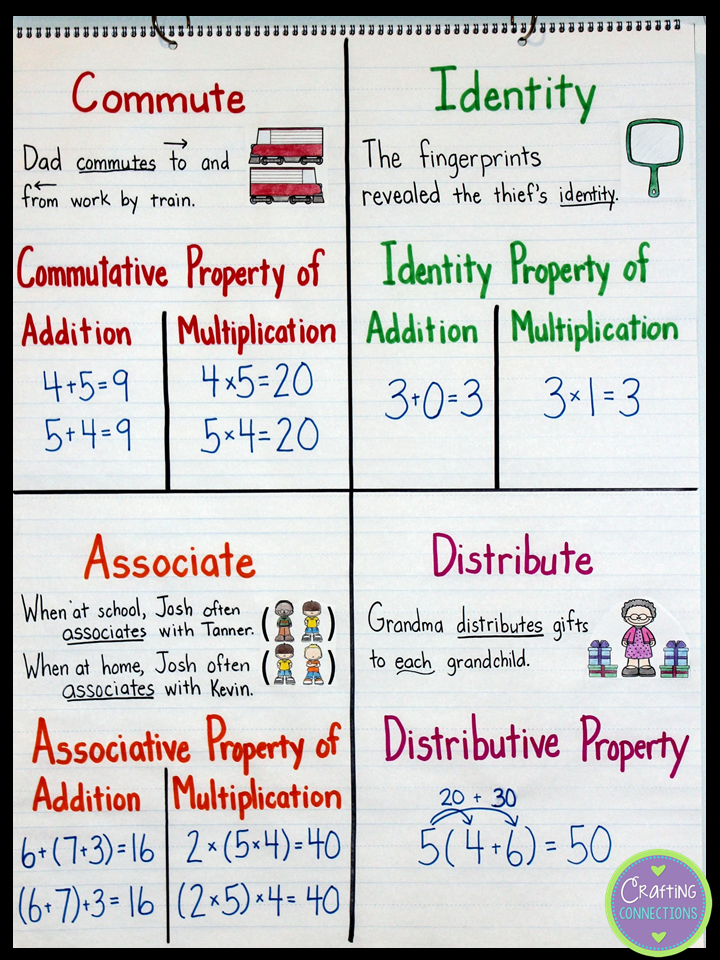 Commute
Dad commutes to and
from work by train.
Commutative Property of
Addition
4+5=9
5+4=9
Multiplication
4×5=20
5×4=20
Identity
The fingerprints
revealed the thief's identity.
Identity Property of
Addition
3+0=3
Multiplication
3×1=3
Associate
When at school, Josh often
associates with Tanner.
When at home, Josh often
associates with Kevin.
Associative Property of
Addition
6+(7+3)=16
(6+7)+3=16
Multiplication
2×(5×4)=40
(2×5)×4=40
Distribute
Grandma distributes gifts
to each grandchild.
Distributive Property
20 + 30
5(4+6)=50
Crafting
CONNECTIONS